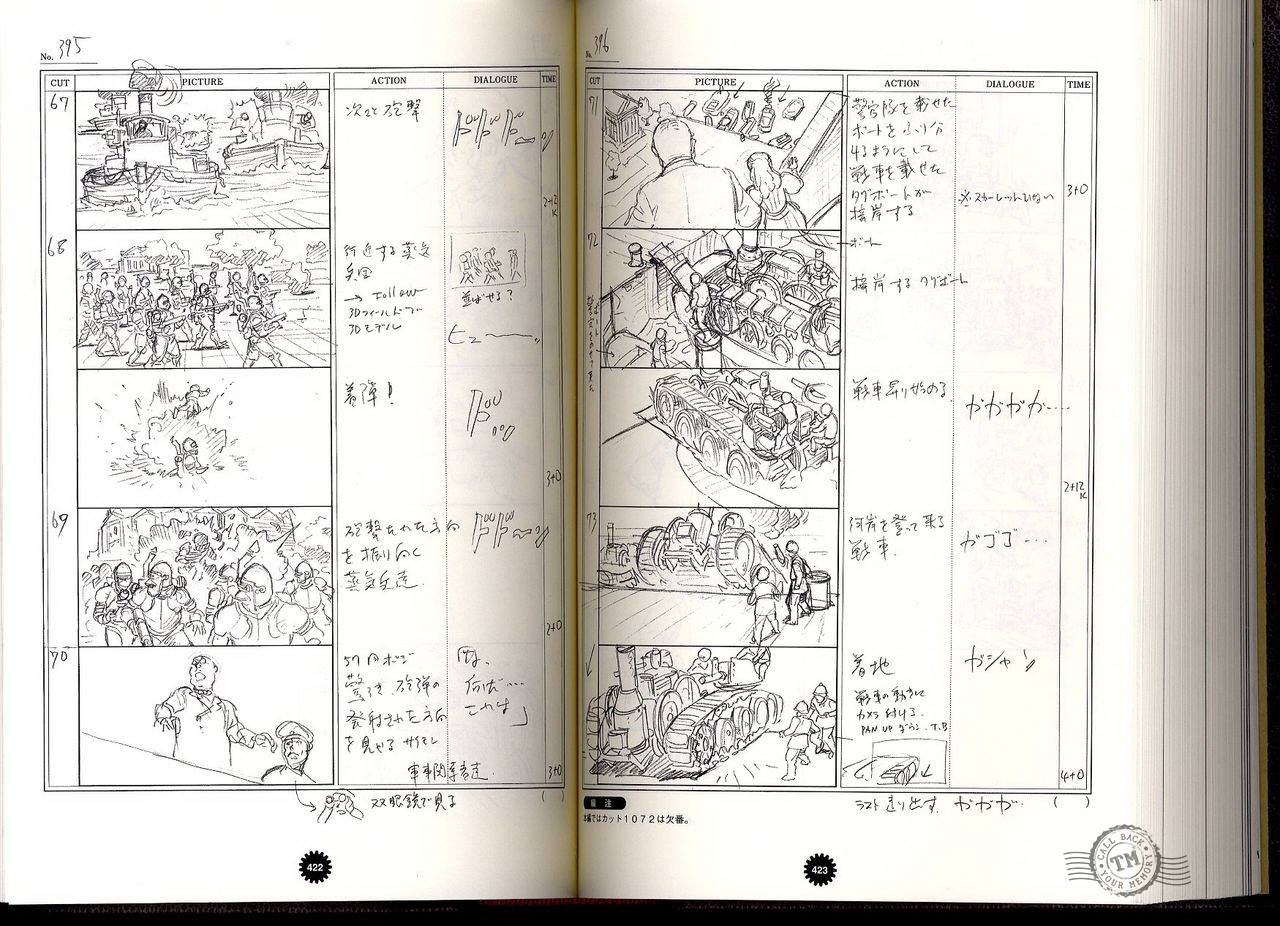 No. 395
CUT PICTURE ACTION DIALOGUE TIME
67
次々と砲撃
2+12
K
68
行進する蒸気
兵団
→ Follow
3Dモデル
並ばせる?
ヒュー
着弾!
3+0
69
砲撃された方向
を振り向く
蒸気兵達
2+0
70
砲弾の
発射された方向
を見やる サイモン
軍事関係者達
何だ…
これは」
3+0
双眼鏡で見る
( )
422
No. 396
CUT PICTURE ACTION DIALOGUE TIME
71
警官隊を載せた
ボートをふり分
けるようにして
戦車を載せた
タグボートが
接岸する
※スカーレットいない
3+0
72
ボート
接岸するタグボート
戦車
ガガガガ…
2+12
K
73
河岸を登って来る
戦車
ガゴゴ…
着地
ガシャン
戦車の動きに
カメラ付ける
PAN UP ダウン. T.B
4+0
ラスト走り出す. ガガガ…
( )
備 注
本編ではカット1072は欠番。
423
CALL BACK
TM
YOUR MEMORY